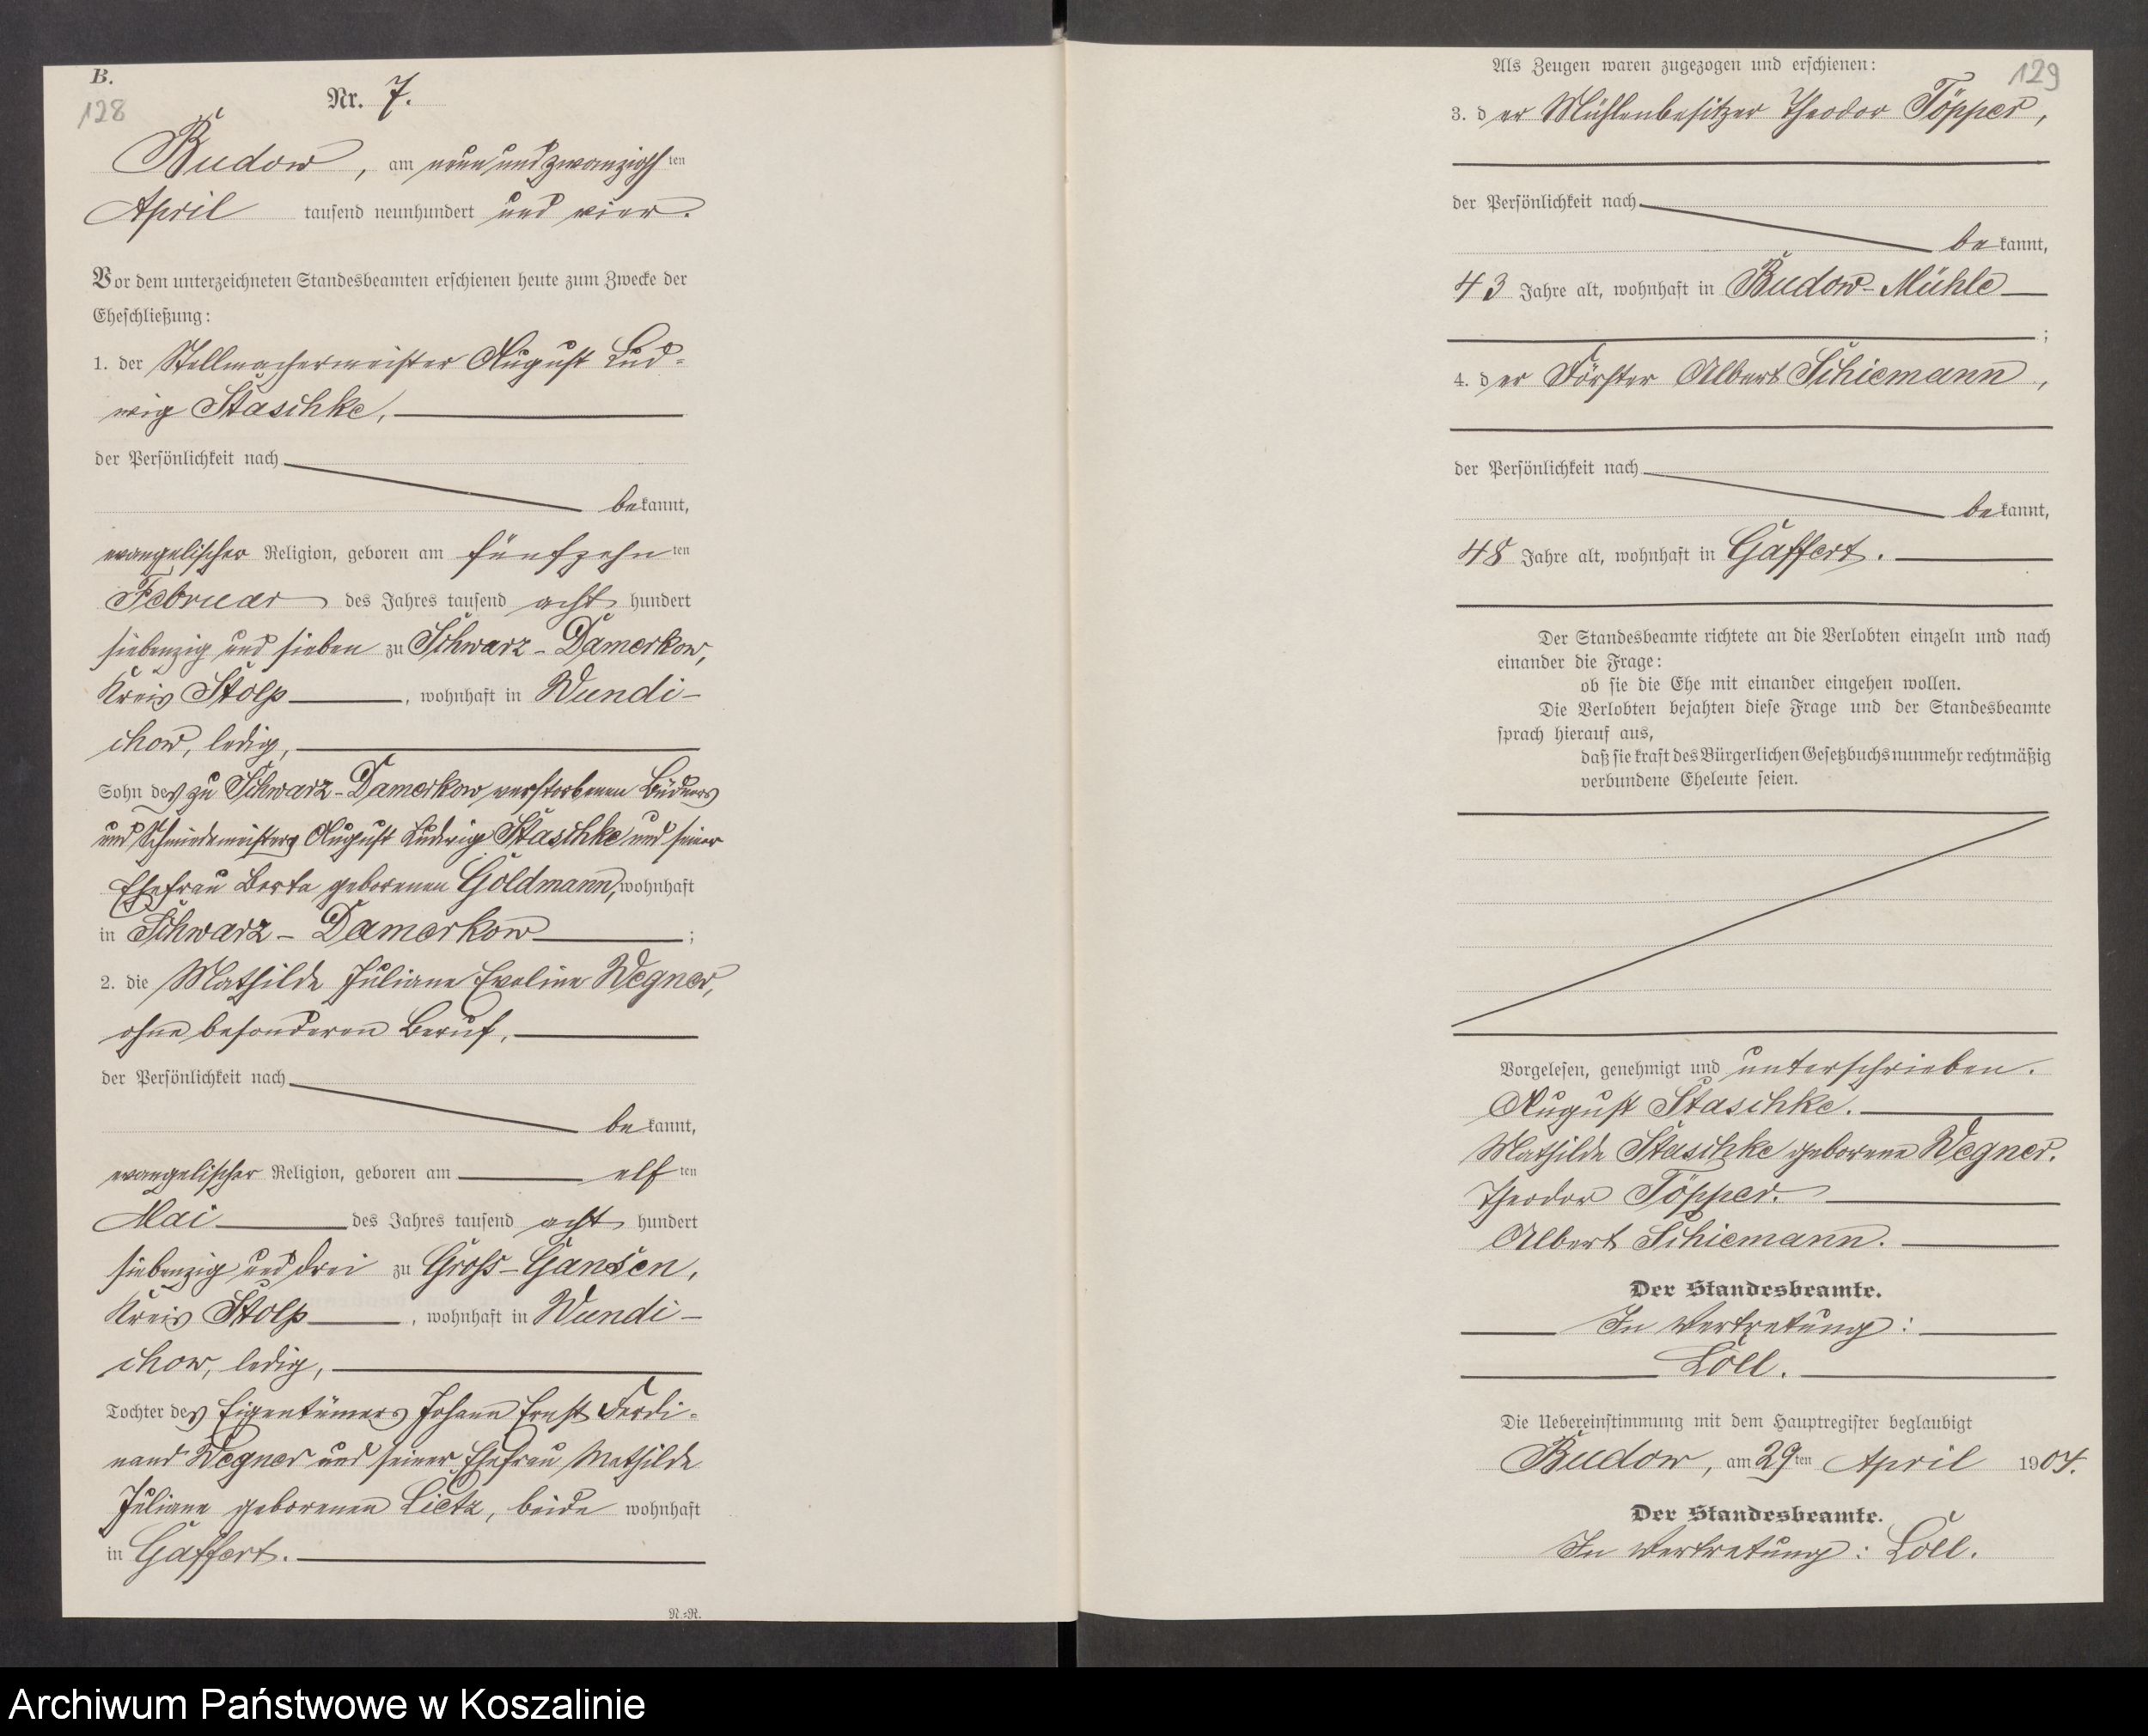 B.
128
Nr. 7.
Budow, am neunundzwanzigsten
April tausend neunhundert und vier.
Vor dem unterzeichneten Standesbeamten erschienen heute zum Zwecke der
Eheschließung:
1. der Stellmachermeister August Lud-
wig Staschke,
der Persönlichkeit nach
bekannt,
evangelischer Religion, geboren am fünfzehnten
Februar des Jahres tausend acht hundert
siebenzig und sieben zu Schwarz-Damerkow,
Kreis Stolp, wohnhaft in Wundi-
chow, ledig,
Sohn des zu Schwarz-Damerkow verstorbenen Büdners
und Schmiedemeisters August Ludwig Staschke und seiner
Ehefrau Berta geborenen Goldmann, wohnhaft
in Schwarz-Damerkow;
2. die Mathilde Juliane Eveline Wegner,
ohne besonderen Beruf,
der Persönlichkeit nach
bekannt,
evangelischer Religion, geboren am elften
Mai des Jahres tausend acht hundert
siebenzig und drei zu Gross-Gansen,
Kreis Stolp, wohnhaft in Wundi-
chow, ledig,
Tochter des Eigentümers Johann Ernst Ferdi-
nand Wegner und seiner Ehefrau Mathilde
Juliane geborenen Lietz, beide wohnhaft
in Gaffert.
N.-R.
Als Zeugen waren zugezogen und erschienen:
129
3. der Mühlenbesitzer Theodor Töpper,
der Persönlichkeit nach
bekannt,
43 Jahre alt, wohnhaft in Budow-Mühle
;
4. der Förster Albert Schiemann,
der Persönlichkeit nach
bekannt,
48 Jahre alt, wohnhaft in Gaffert.
Der Standesbeamte richtete an die Verlobten einzeln und nach
einander die Frage:
ob sie die Ehe mit einander eingehen wollen.
Die Verlobten bejahten diese Frage und der Standesbeamte
sprach hierauf aus,
daß sie kraft des Bürgerlichen Gesetzbuchs nunmehr rechtmäßig
verbundene Eheleute seien.
Vorgelesen, genehmigt und unterschrieben.
August Staschke.
Mathilde Staschke geborene Wegner.
Theodor Töpper.
Albert Schiemann.
Der Standesbeamte.
In Vertretung:
Löll.
Die Uebereinstimmung mit dem Hauptregister beglaubigt
Budow, am 29ten April 1904.
Der Standesbeamte.
In Vertretung: Löll.
Archiwum Państwowe w Koszalinie